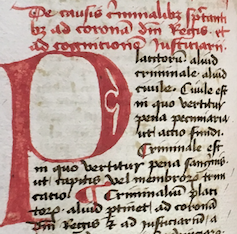 De causis criminalibus spectanti
bus ad coronam dni Regis et
ad cognitionem Justiciarii.
Placitoru aliud
criminale aliud
ciuile. Ciuile est
in quo vertitur
pena pecuniaria
ut actio
Criminale est
in quo vertitur pena sanguis
ut capitis vel membrorum trun
catio. ¶ Criminaliu placi
torum aliud ptinet ad corona
dni Regis et ad justiciariu a